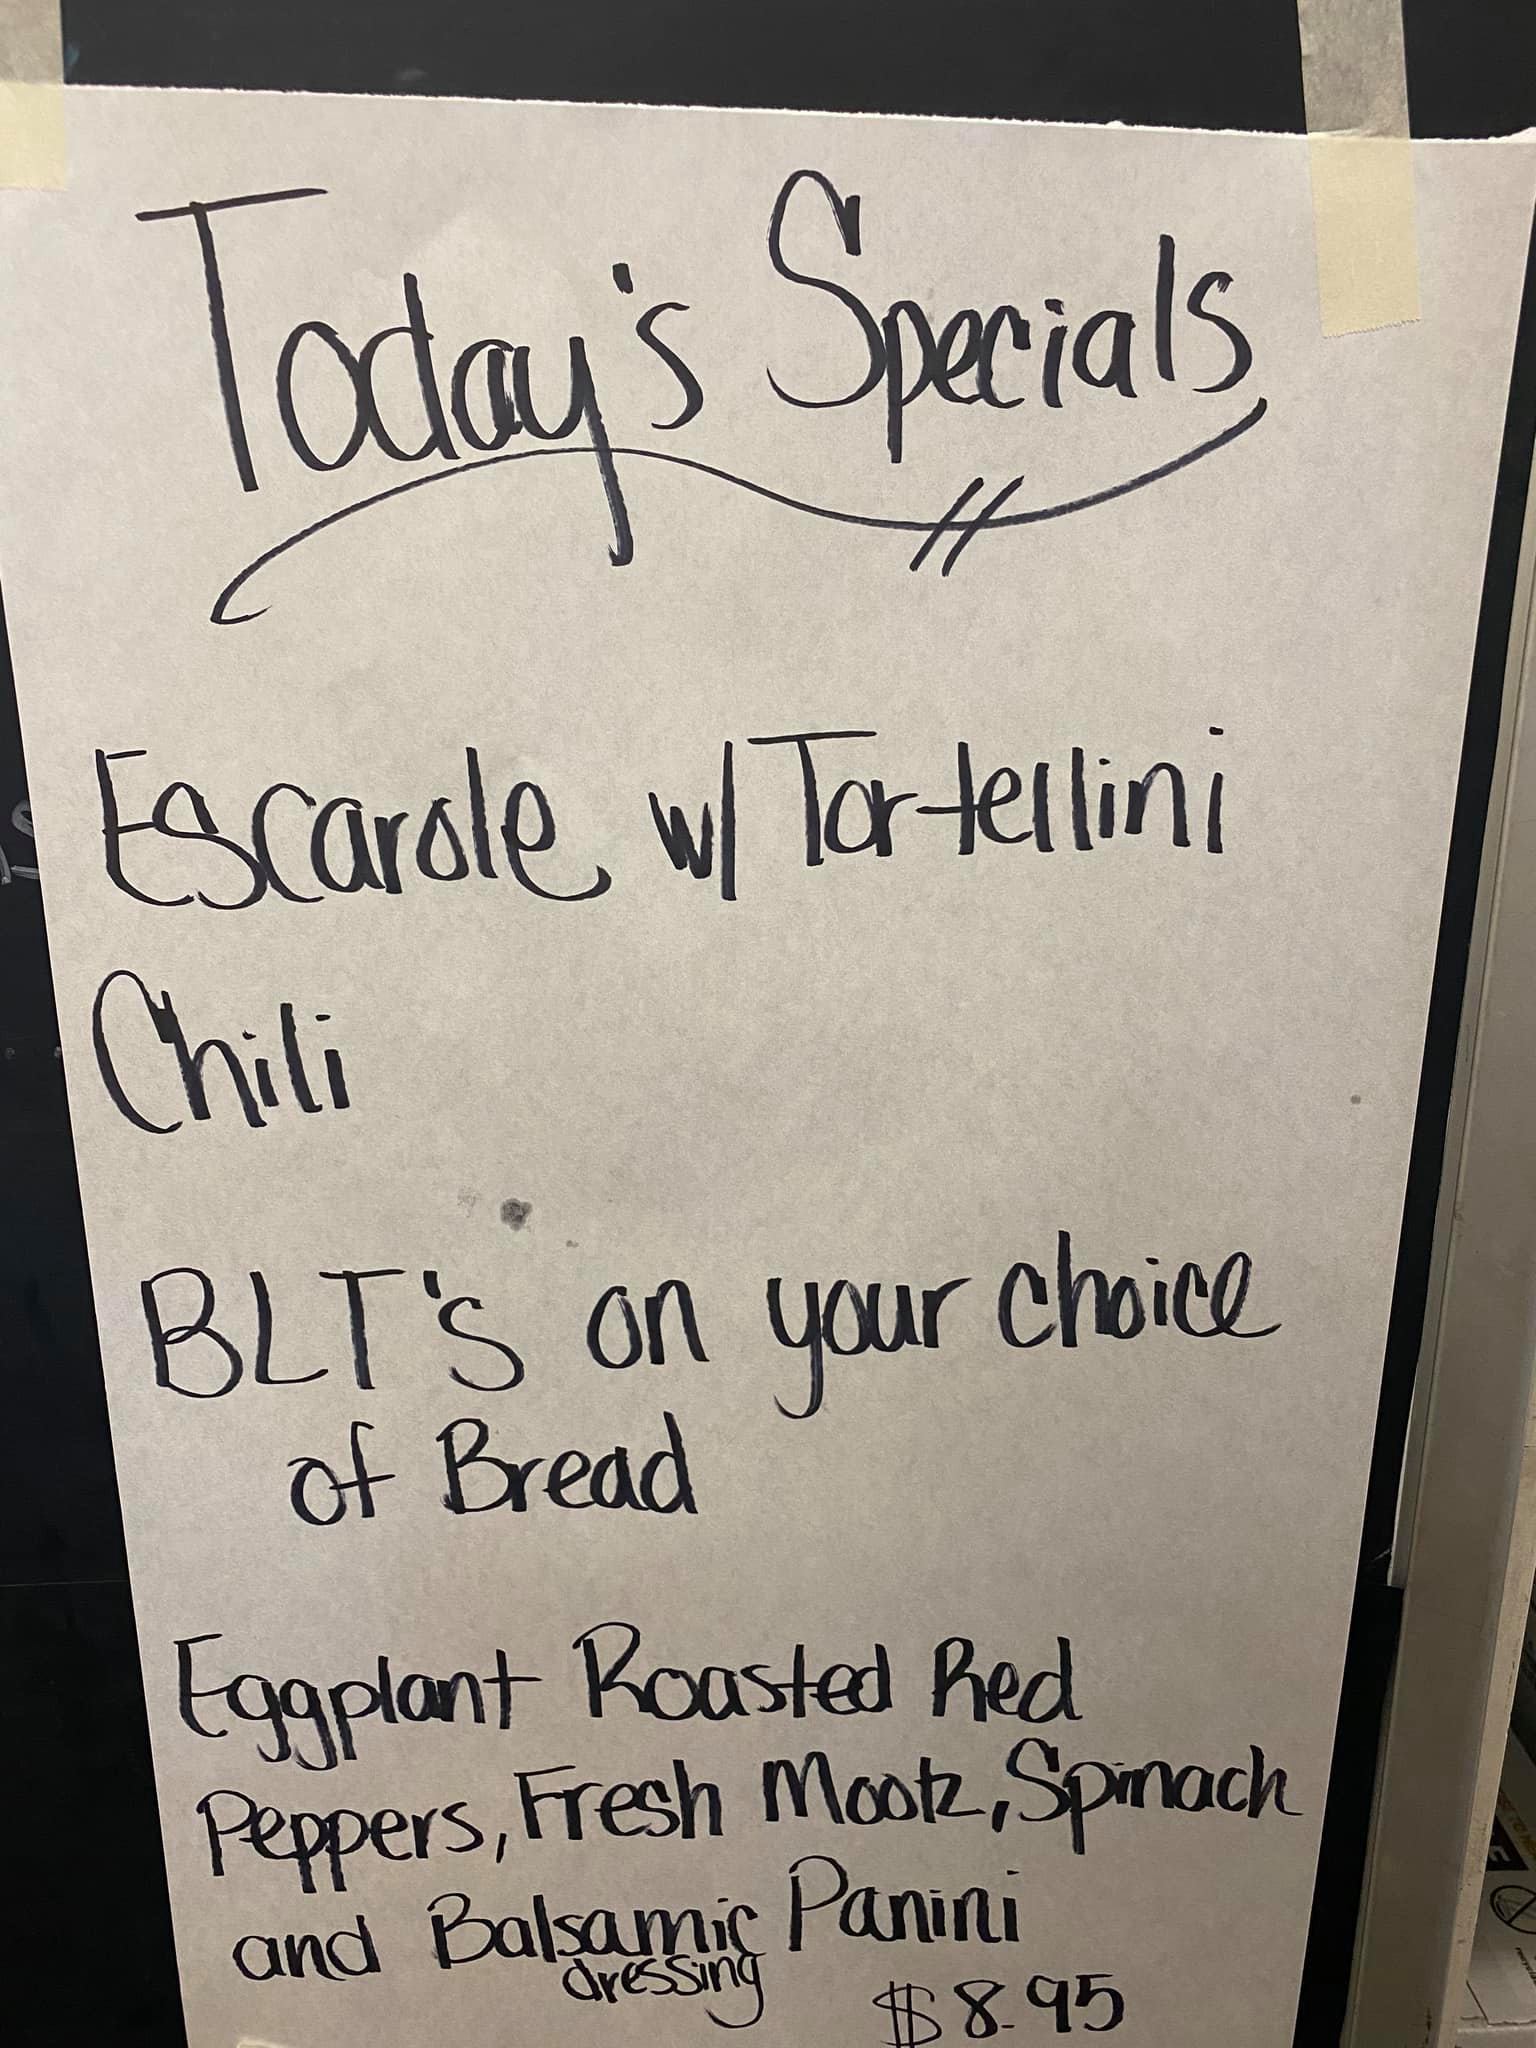 Today's Specials
Escarole w/ Tortellini
Chili
BLT's on your choice
of Bread
Eggplant Roasted Red
Peppers, Fresh Mootz, Spinach
and Balsamic Panini
dressing
$8.95